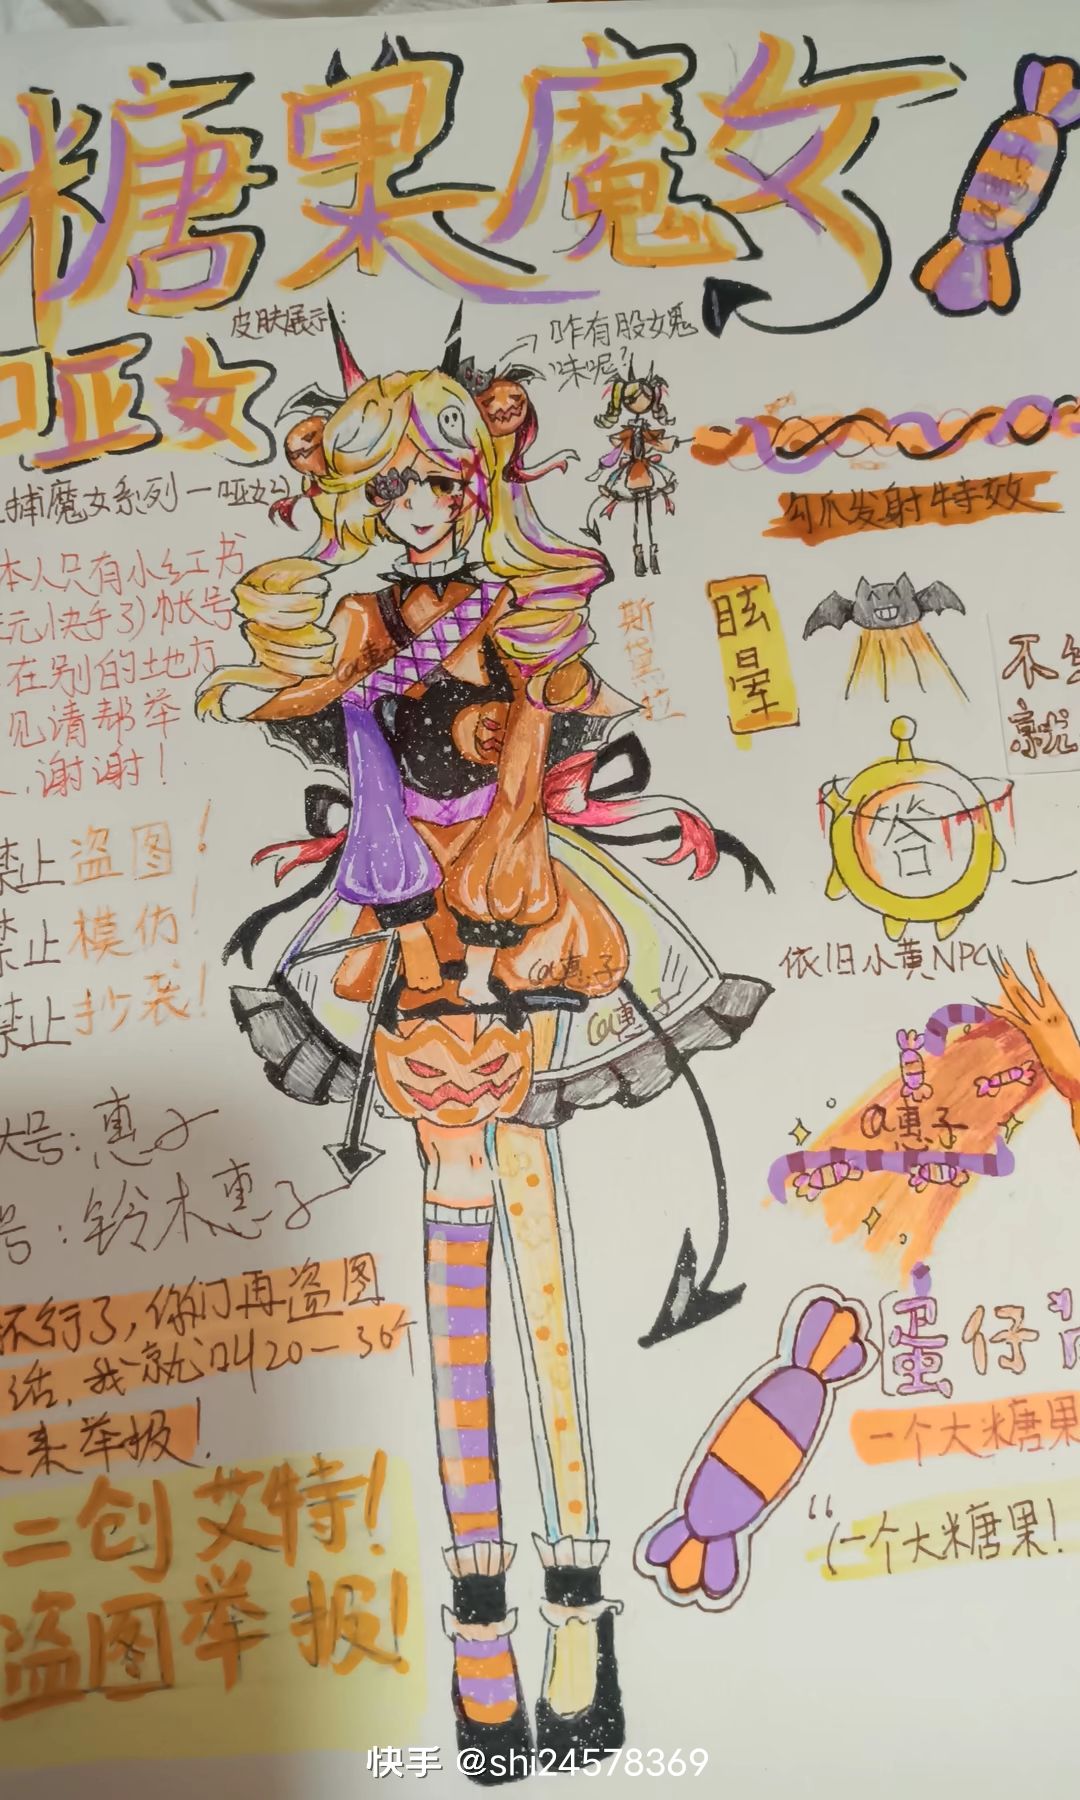 糖果魔女
哑女
皮肤展示:
→咋有股女鬼
味呢?
捕魔女系列一哑女
勾爪发射特效
本人只有小红书
元快手3)帐号
在别的地方
见请帮举
谢谢!
斯黛拉
眩晕
不
就
答
依旧小黄NPC
禁止盗图!
禁止模仿!
禁止抄袭!
@惠子
@惠子
@惠子
@惠子
大号:惠子
号:铃木惠子
不行了,你们再盗图
话,我就叫20-30个
来举报!
二创艾特!
盗图举报!
蛋仔
一个大糖果
“一个大糖果!
快手 @shi24578369